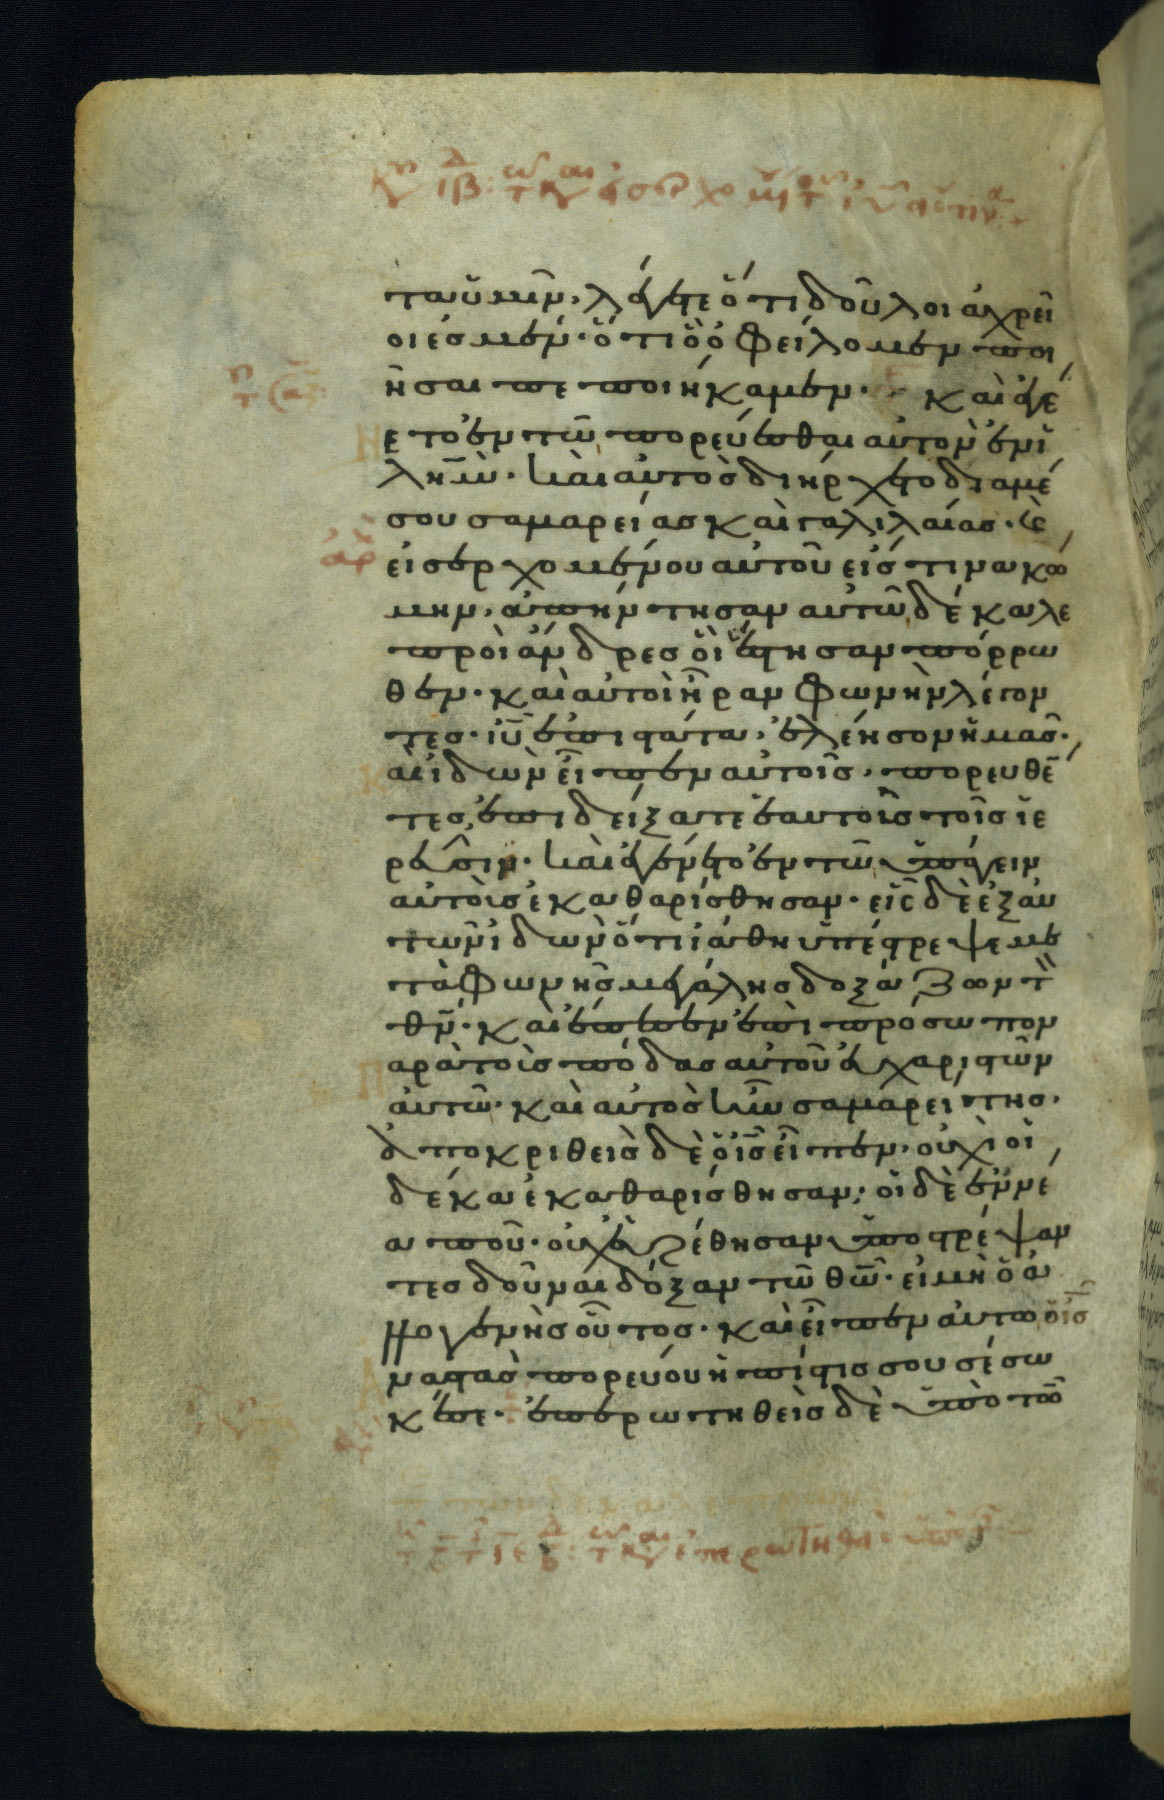 τα ὑμῖν, λέγετε ὅτι δοῦλοι ἀχρεῖ
οι ἐσμέν· ὅτι ὃ ὀφείλομεν ποι
ῆσαι πεποιήκαμεν· καὶ ἐγέ
ετο ἐν τῶ πορεύεσθαι αὐτὸν ἐν ἱ
λημ· καὶ αὐτὸς διήρχετο διαμέ
σου σαμαρείας καὶ γαλιλαίας· καὶ
εἰσερχομένου αὐτοῦ εἴς τινα κώ
μην, ἀπήντησαν αὐτῶ δέκα λε
προὶ ἄνδρες οἳ ἔστησαν πόρρω
θεν· καὶ αὐτοὶ ἦραν φωνὴν λέγον
τες· ἰῦ ἐπιστάτα, ἐλέησον ἡμᾶς·
αὶ ἰδὼν εἶπεν αὐτοῖς, πορευθέ
τες ἐπιδείξατε ἑαυτοῖς τοῖς ἱε
ρεῦσιν· καὶ ἐγένετο ἐν τῶ ὑπάγειν
αὐτοὺς ἐκαθαρίσθησαν· εἷς δὲ ἐξ αὐ
τῶν ἰδὼν ὅτι ἰάθη ὑπέστρεψε με
τὰ φωνῆς μεγάλης δοξάζων τὸν
θν· καὶ ἔπεσεν ἐπὶ πρόσωπον
αρὰ τοὺς πόδας αὐτοῦ εὐχαριστῶν
αὐτῶ· καὶ αὐτὸς ἦν σαμαρείτης·
ἀποκριθεὶς δὲ ὁ ις εἶπεν· οὐχὶ οἱ
δέκα ἐκαθαρίσθησαν; οἱ δὲ ἐννέ
α ποῦ· οὐχ εὑρέθησαν ὑποστρέψαν
τες δοῦναι δόξαν τῶ θω· εἰ μὴ ὁ ἀ
λλογενὴς οὗτος· καὶ εἶπεν αὐτω ὁ ις
ναστὰς πορεύου ἡ πίστις σου σέσω
κέ σε· ἐπερωτηθεὶς δὲ ὑπὸ τῶν